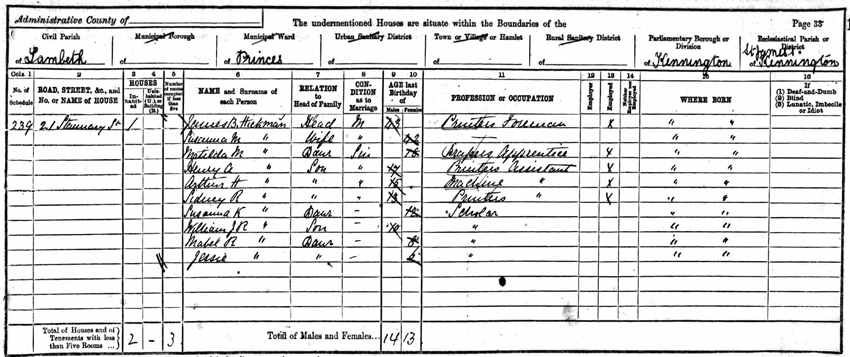 Administrative County of
The undermentioned Houses are situate within the Boundaries of the
Page 33
Civil Parish
of Lambeth
Municipal Borough
of
Municipal Ward
of Princes
Urban Sanitary District
of
Town or Village or Hamlet
of
Rural Sanitary District
of
Parliamentary Borough or Division
of Kennington
Ecclesiastical Parish or District
of Kennington
Cols. 1 2 3 4 5 6 7 8 9 10 11 12 13 14 15 16
No. of Schedule
ROAD, STREET, &c., and No. or NAME of HOUSE
HOUSES
Inhabited
Uninhabited (U.) or Building (B.)
Number of rooms occupied if less than five
NAME and Surname of each Person
RELATION to Head of Family
CONDITION as to Marriage
AGE last Birthday of
Males
Females
PROFESSION or OCCUPATION
Employer
Employed
Neither Employer nor Employed
WHERE BORN
If (1) Deaf-and-Dumb (2) Blind (3) Lunatic, Imbecile or Idiot
239 21 Stannary St 1 James B. Hickman Head M Printers Foreman X " "
Susanna M " Wife " 42 " "
Matilda M " Daur Sin Drapers Apprentice X " "
Henry A " Son " Printers Assistant X " "
Arthur H " " " Machine " X " "
Sidney R " " " Printers " X " "
Susanna K " Daur - Scholar " "
William J R " Son - " " "
Mabel R " Daur - " " "
Jessie " " - " " "
Total of Houses and of Tenements with less than Five Rooms ... 2 - 3
Total of Males and Females... 14 13